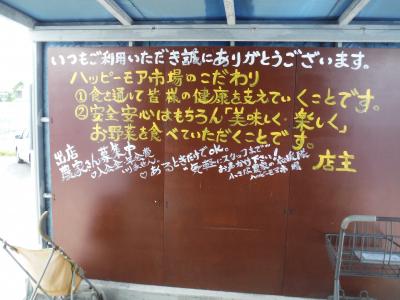 いつもご利用いただき誠にありがとうございます。
ハッピーモア市場のこだわり
①食を通して皆様の健康を支えていくことです。
②安全安心はもちろん「美味しく・楽しく」
お野菜を食べていただくことです。
店主
出店
農家さん募集中
♡あるときだけでOK。
気軽にスタッフまで
お声かけ下さい!